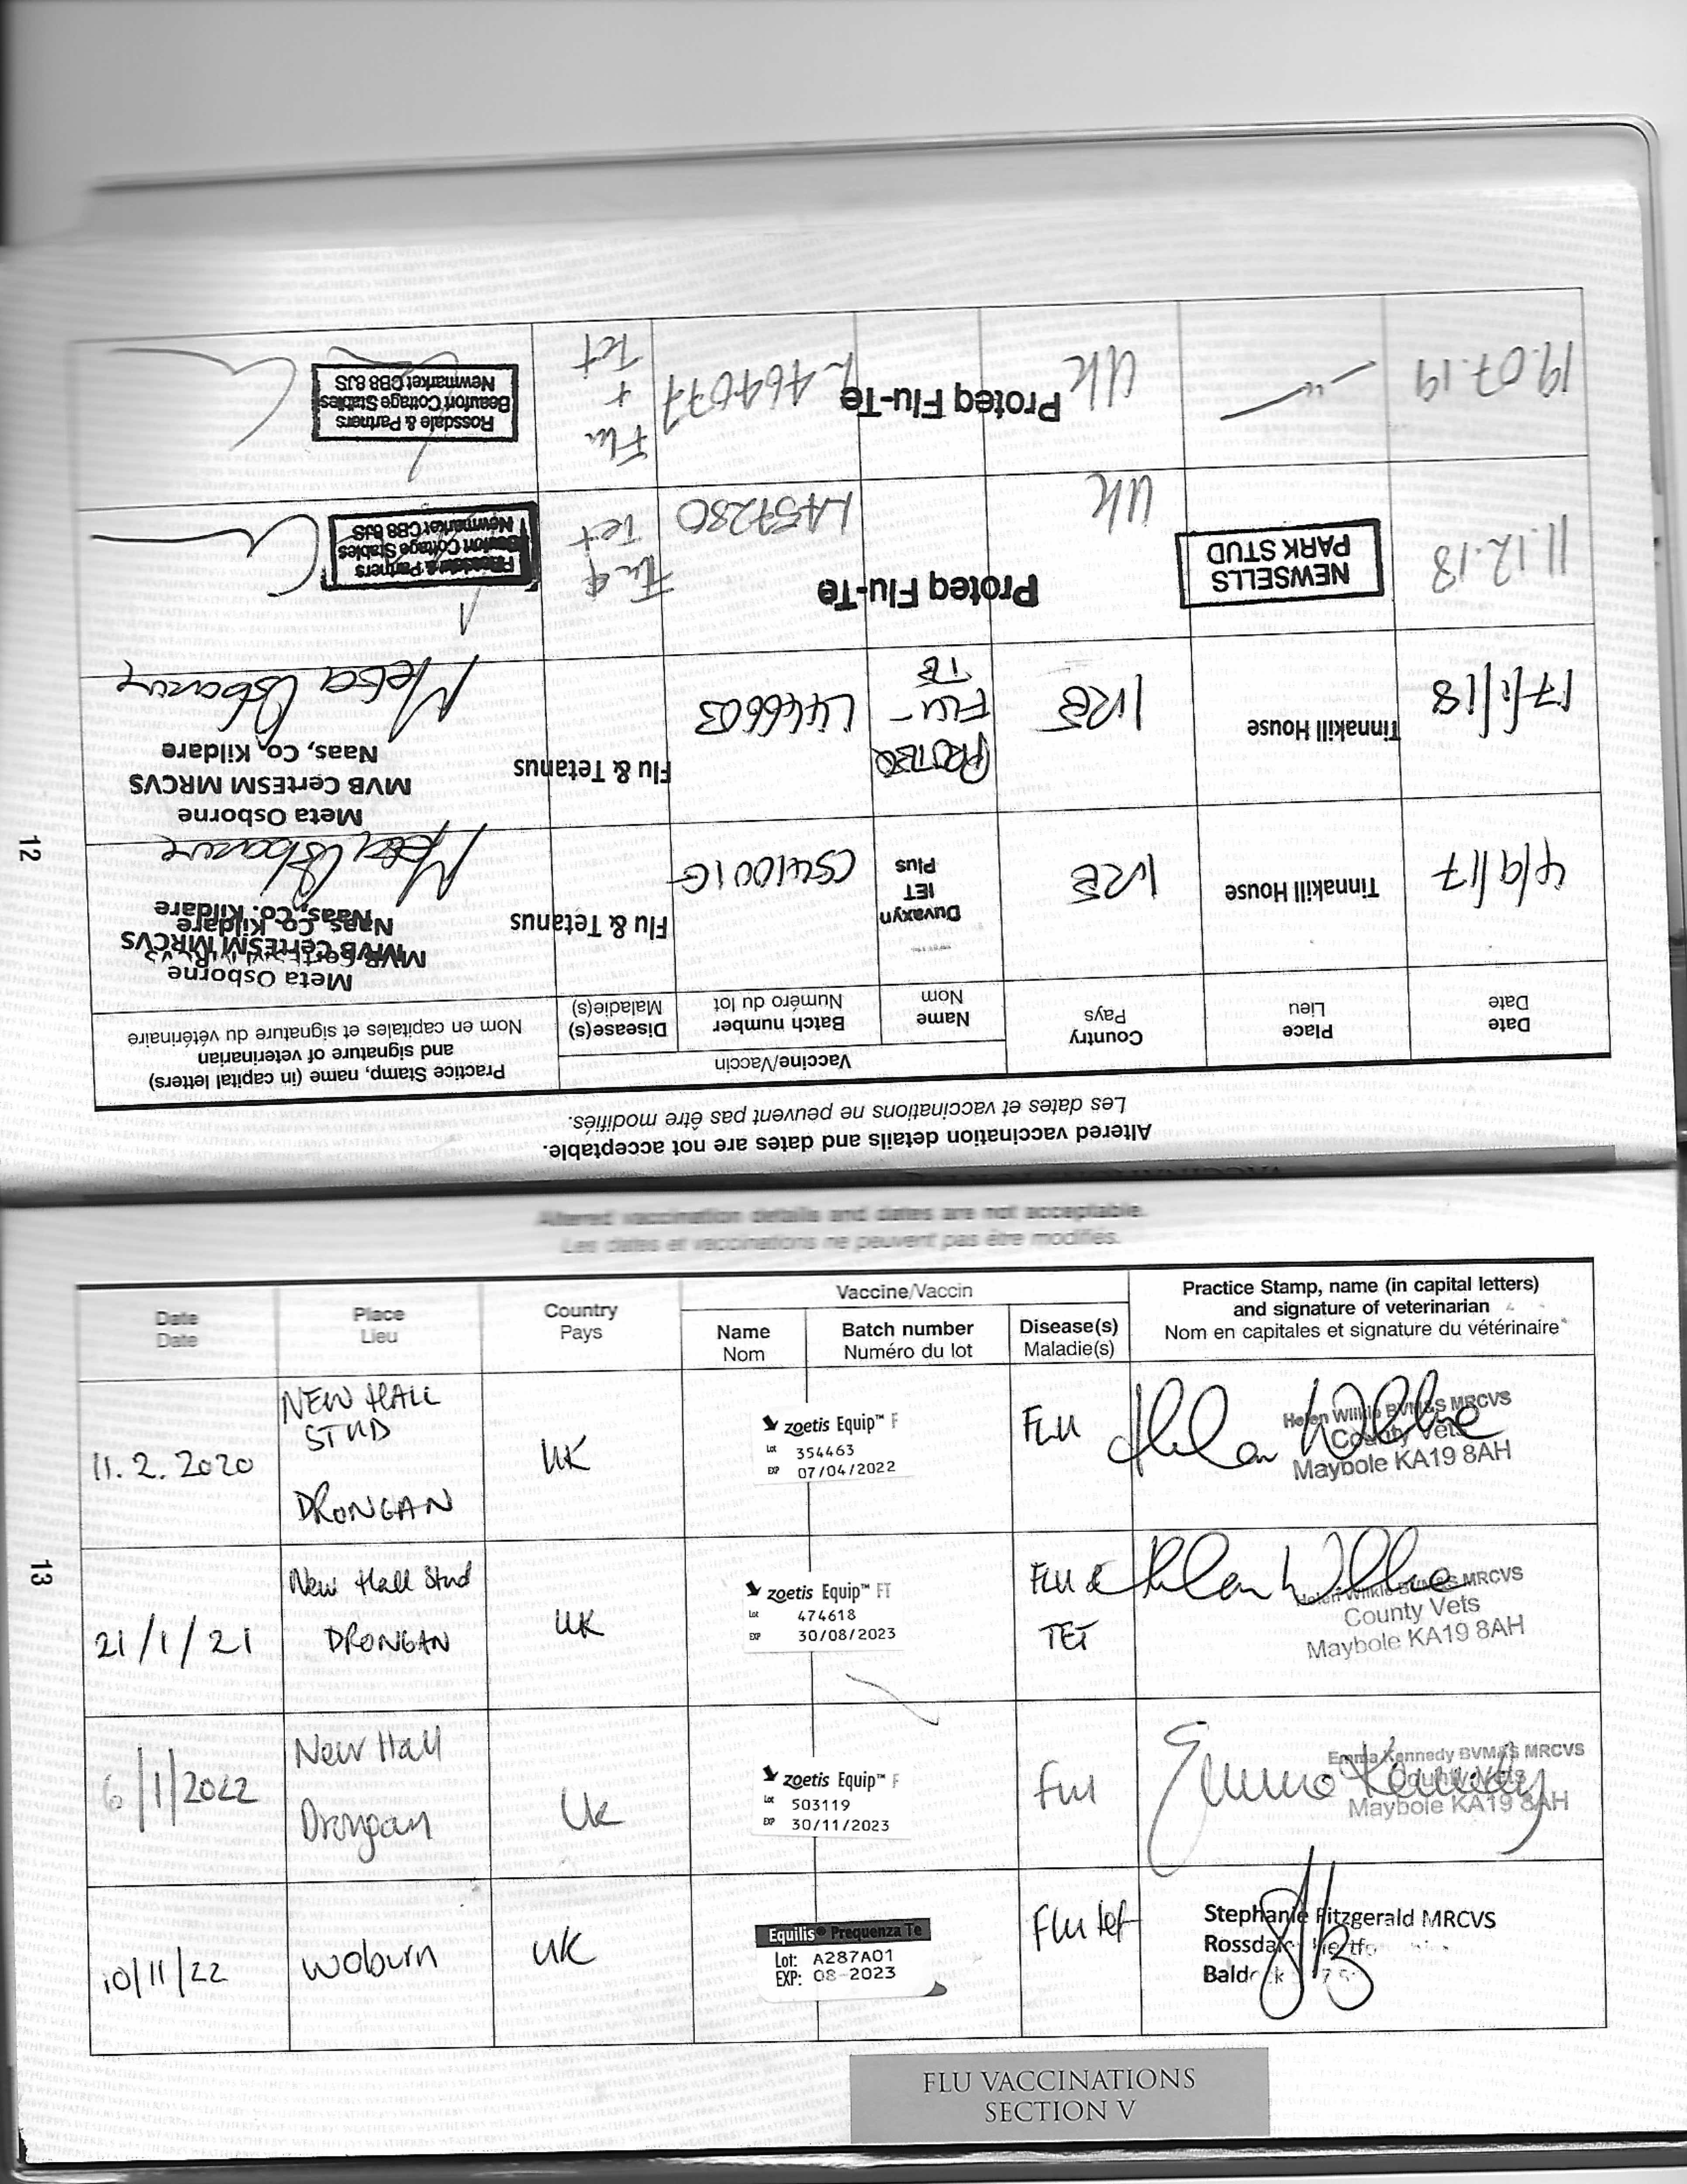 Altered vaccination details and dates are not acceptable.
Les dates et vaccinations ne peuvent pas être modifiées.
Date
Date
Place
Lieu
Country
Pays
Vaccine/Vaccin
Name
Nom
Batch number
Numéro du lot
Disease(s)
Maladie(s)
Practice Stamp, name (in capital letters)
and signature of veterinarian
Nom en capitales et signature du vétérinaire
4/9/17
Tinnakill House
IRE
Duvaxyn
IET
Plus
Flu & Tetanus
Meta Osborne
MVB CertESM MRCVS
Naas, Co. Kildare
Meta Osborne
17/1/18
Tinnakill House
IRE
PROTEQ
FLU-
TE
L446603
Flu & Tetanus
Meta Osborne
MVB CertESM MRCVS
Naas, Co, Kildare
Meta Osborne
11.12.18
NEWSELLS
PARK STUD
UK
Proteq Flu-Te
L457280
Flu &
Tet
Rossdale & Partners
Beaufort Cottage Stables
Newmarket CB8 8JS
19.07.19
UK
Proteq Flu-Te
L464077
Flu
+
Tet
Rossdale & Partners
Beaufort Cottage Stables
Newmarket CB8 8JS
12
Altered vaccination details and dates are not acceptable.
Les dates et vaccinations ne peuvent pas être modifiées.
Date
Date
Place
Lieu
Country
Pays
Vaccine/Vaccin
Name
Nom
Batch number
Numéro du lot
Disease(s)
Maladie(s)
Practice Stamp, name (in capital letters)
and signature of veterinarian
Nom en capitales et signature du vétérinaire
11.2.2020
NEW HALL
STUD
DRONGAN
UK
zoetis Equip™ F
Lot 354463
EXP 07/04/2022
FLU
Helen Wilkie BVM&S MRCVS
County Vets
Maybole KA19 8AH
21/1/21
New Hall Stud
DRONGAN
UK
zoetis Equip™ FT
Lot 474618
EXP 30/08/2023
FLU &
TET
Helen Wilkie BVM&S MRCVS
County Vets
Maybole KA19 8AH
6/1/2022
New Hall
Drongan
UK
zoetis Equip™ F
Lot 503119
EXP 30/11/2023
Flu
Emma Kennedy BVM&S MRCVS
County Vets
Maybole KA19 8AH
10/11/22
Woburn
UK
Equilis® Prequenza Te
Lot: A287A01
EXP: 08-2023
Flu tet
Stephanie Fitzgerald MRCVS
13
FLU VACCINATIONS
SECTION V